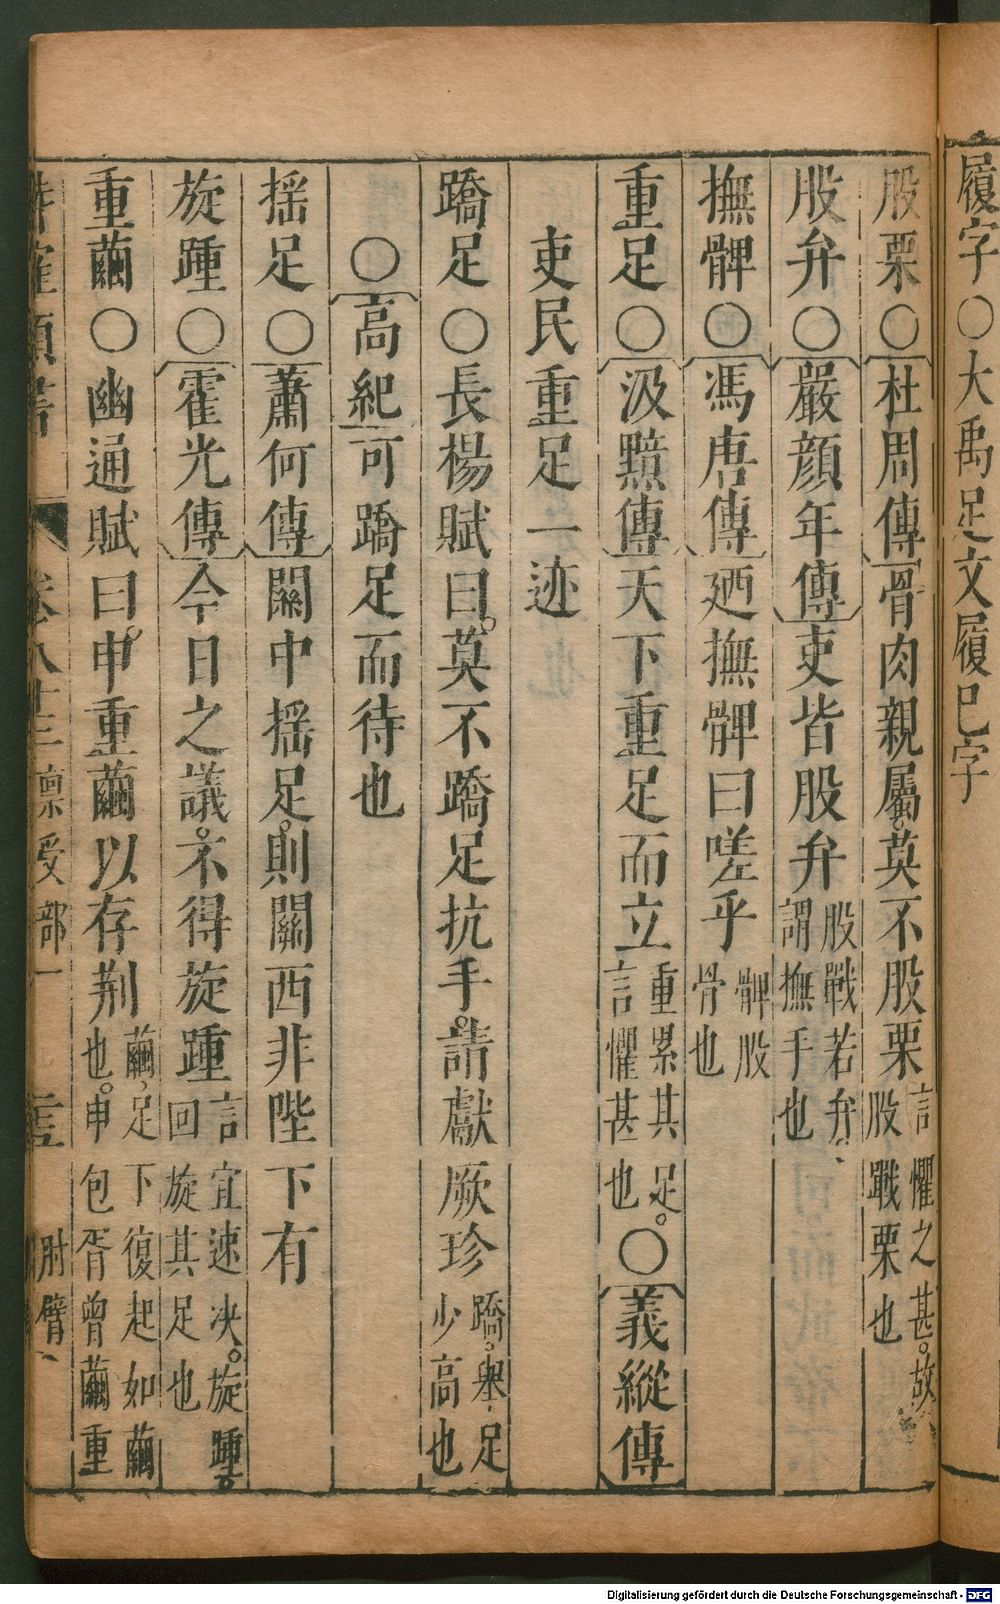 履字〇大禹足文履巳字
股栗〇杜周傳骨肉親屬莫不股栗言懼之甚。故股戰栗也
股弁〇嚴顔年傳吏皆股弁股戰若弁、謂撫手也
撫髀〇馮唐傳廼撫髀曰嗟乎髀股骨也
重足〇汲黯傳天下重足而立重累其足。言懼甚也〇義縱傳
吏民重足一迹
蹻足〇長楊賦曰。莫不蹻足抗手。請獻厥珍蹻。舉足少高也
〇高紀可蹻足而待也
揺足〇蕭何傳關中揺足。則關西非陛下有
旋踵〇霍光傳今日之議。不得旋踵言宜速决。旋踵。回旋其足也
重繭〇幽通賦曰。申重繭以存荆繭、足下復起如繭也。申包胥曾繭重
卷八十三 禀受部一 肘臂、
Digitalisierung gefördert durch die Deutsche Forschungsgemeinschaft - DFG